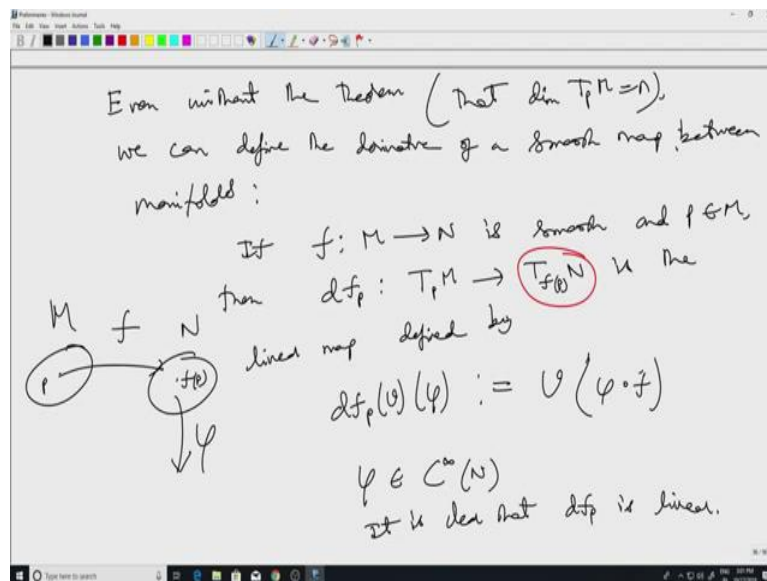 Preliminaries - Windows Journal
File Edit View Insert Actions Tools Help
Even without the theorem (that dim TₚM = n),
we can define the derivative of a smooth map between
manifolds :
If f : M → N is smooth and p ∈ M,
then dfₚ : TₚM → T_f(p) N is the
linear map defined by
M f N
p · f(p)
φ
dfₚ(v)(φ) := v(φ∘f)
φ ∈ C^∞(N)
It is clear that dfₚ is linear.
Type here to search